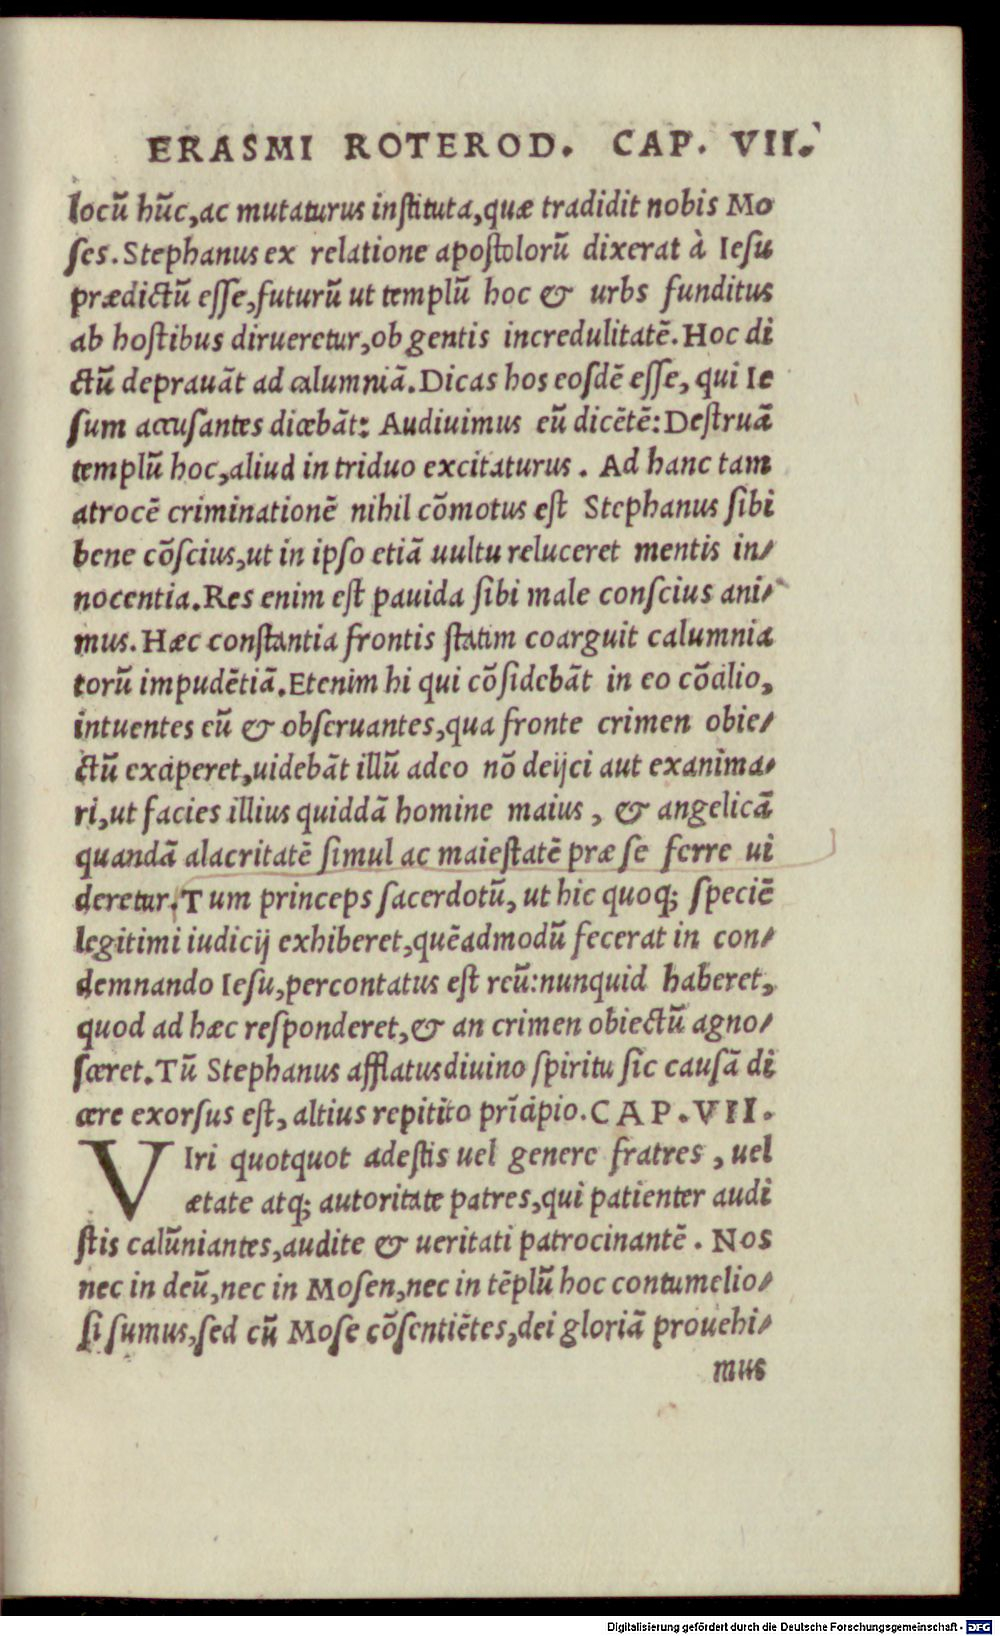 ERASMI ROTEROD. CAP. VII.
locũ hũc, ac mutaturus instituta, quæ tradidit nobis Mo
ses. Stephanus ex relatione apostolorũ dixerat à Iesu
prædictũ esse, futurũ ut templũ hoc & urbs funditus
ab hostibus dirueretur, ob gentis incredulitatẽ. Hoc di
ctũ deprauãt ad calumniã. Dicas hos eosdẽ esse, qui Ie
sum accusantes dicebãt: Audiuimus eũ dicẽtẽ: Destruã
templũ hoc, aliud in triduo excitaturus. Ad hanc tam
atrocẽ criminationẽ nihil cõmotus est Stephanus sibi
bene cõscius, ut in ipso etiã uultu reluceret mentis in/
nocentia. Res enim est pauida sibi male conscius ani/
mus. Hæc constantia frontis statim coarguit calumnia
torũ impudẽtiã. Etenim hi qui cõsidebãt in eo cõcilio,
intuentes eũ & obseruantes, qua fronte crimen obie/
ctũ exciperet, uidebãt illũ adeo nõ deijci aut exanima/
ri, ut facies illius quiddã homine maius, & angelicã
quandã alacritatẽ simul ac maiestatẽ præ se ferre ui
deretur. Tum princeps sacerdotũ, ut hic quoq; speciẽ
legitimi iudicij exhiberet, quẽadmodũ fecerat in con/
demnando Iesu, percontatus est reũ: nunquid haberet,
quod ad hæc responderet, & an crimen obiectũ agno/
sceret. Tũ Stephanus afflatus diuino spiritu sic causã di
cere exorsus est, altius repitito prĩcipio. CAP. VII.
VIri quotquot adestis uel genere fratres, uel
ætate atq; autoritate patres, qui patienter audi
stis calũniantes, audite & ueritati patrocinantẽ. Nos
nec in deũ, nec in Mosen, nec in tẽplũ hoc contumelio/
si sumus, sed cũ Mose cõsentiẽtes, dei gloriã prouehi/
mus
Digitalisierung gefördert durch die Deutsche Forschungsgemeinschaft - DFG